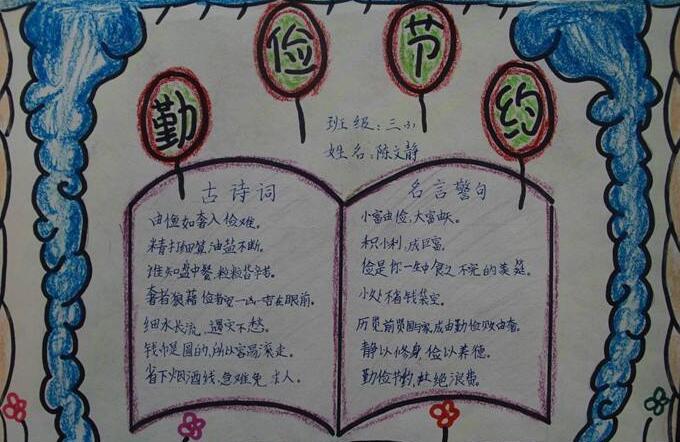 勤俭节约
班级：三(3)
姓名：陈文静
古诗词
由俭如奢入俭难。
精打细算，油盐不断。
谁知盘中餐，粒粒皆辛苦。
奢者狼藉俭者 一凶一吉在眼前。
细水长流，遇灾不愁。
钱币是圆的，所以容易滚走。
省下烟酒钱，急难免 人。
名言警句
小富由俭，大富由天。
积小利，成巨富。
俭是你一生中食之不完的美筵。
小处不省钱袋空。
历览前贤国与家，成由勤俭败由奢。
静以修身，俭以养德。
勤俭节约，杜绝浪费。